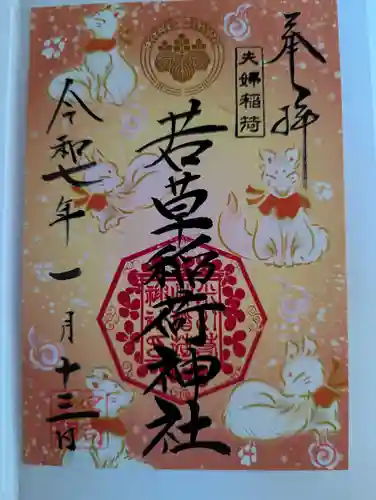 奉拝
夫婦稲荷
若草稲荷神社
令和七年一月十三日